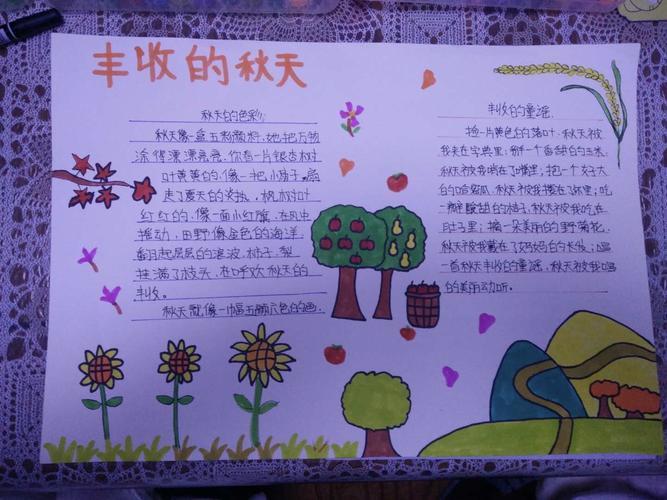 丰收的秋天
秋天的色彩
秋天象一盒五彩颜料，她把万物
涂得漂漂亮亮，你看一片银杏树
叶黄黄的，像一把小扇子，扇
走了夏天的炎热，枫树叶
红红的，像一面小红旗，在风中
摇动，田野像金色的海洋，
翻起层层的滚波，柿子，梨
挂满了枝头，在呼欢秋天的
丰收。
秋天就像一幅五颜六色的画．
丰收的童谣
捡一片黄色的落叶，秋天被
我夹在字典里；掰一个香甜的玉米，
秋天被我啃在了嘴里；抱一个大大
的哈蜜瓜，秋天被我搂在了怀里；吃
一瓣酸甜的桔子，秋天被我吃在
肚子里；摘一朵美丽的野菊花，
秋天被我戴在了妈妈的长发；唱
一首秋天丰收的童谣，秋天被我唱
的美丽动听。